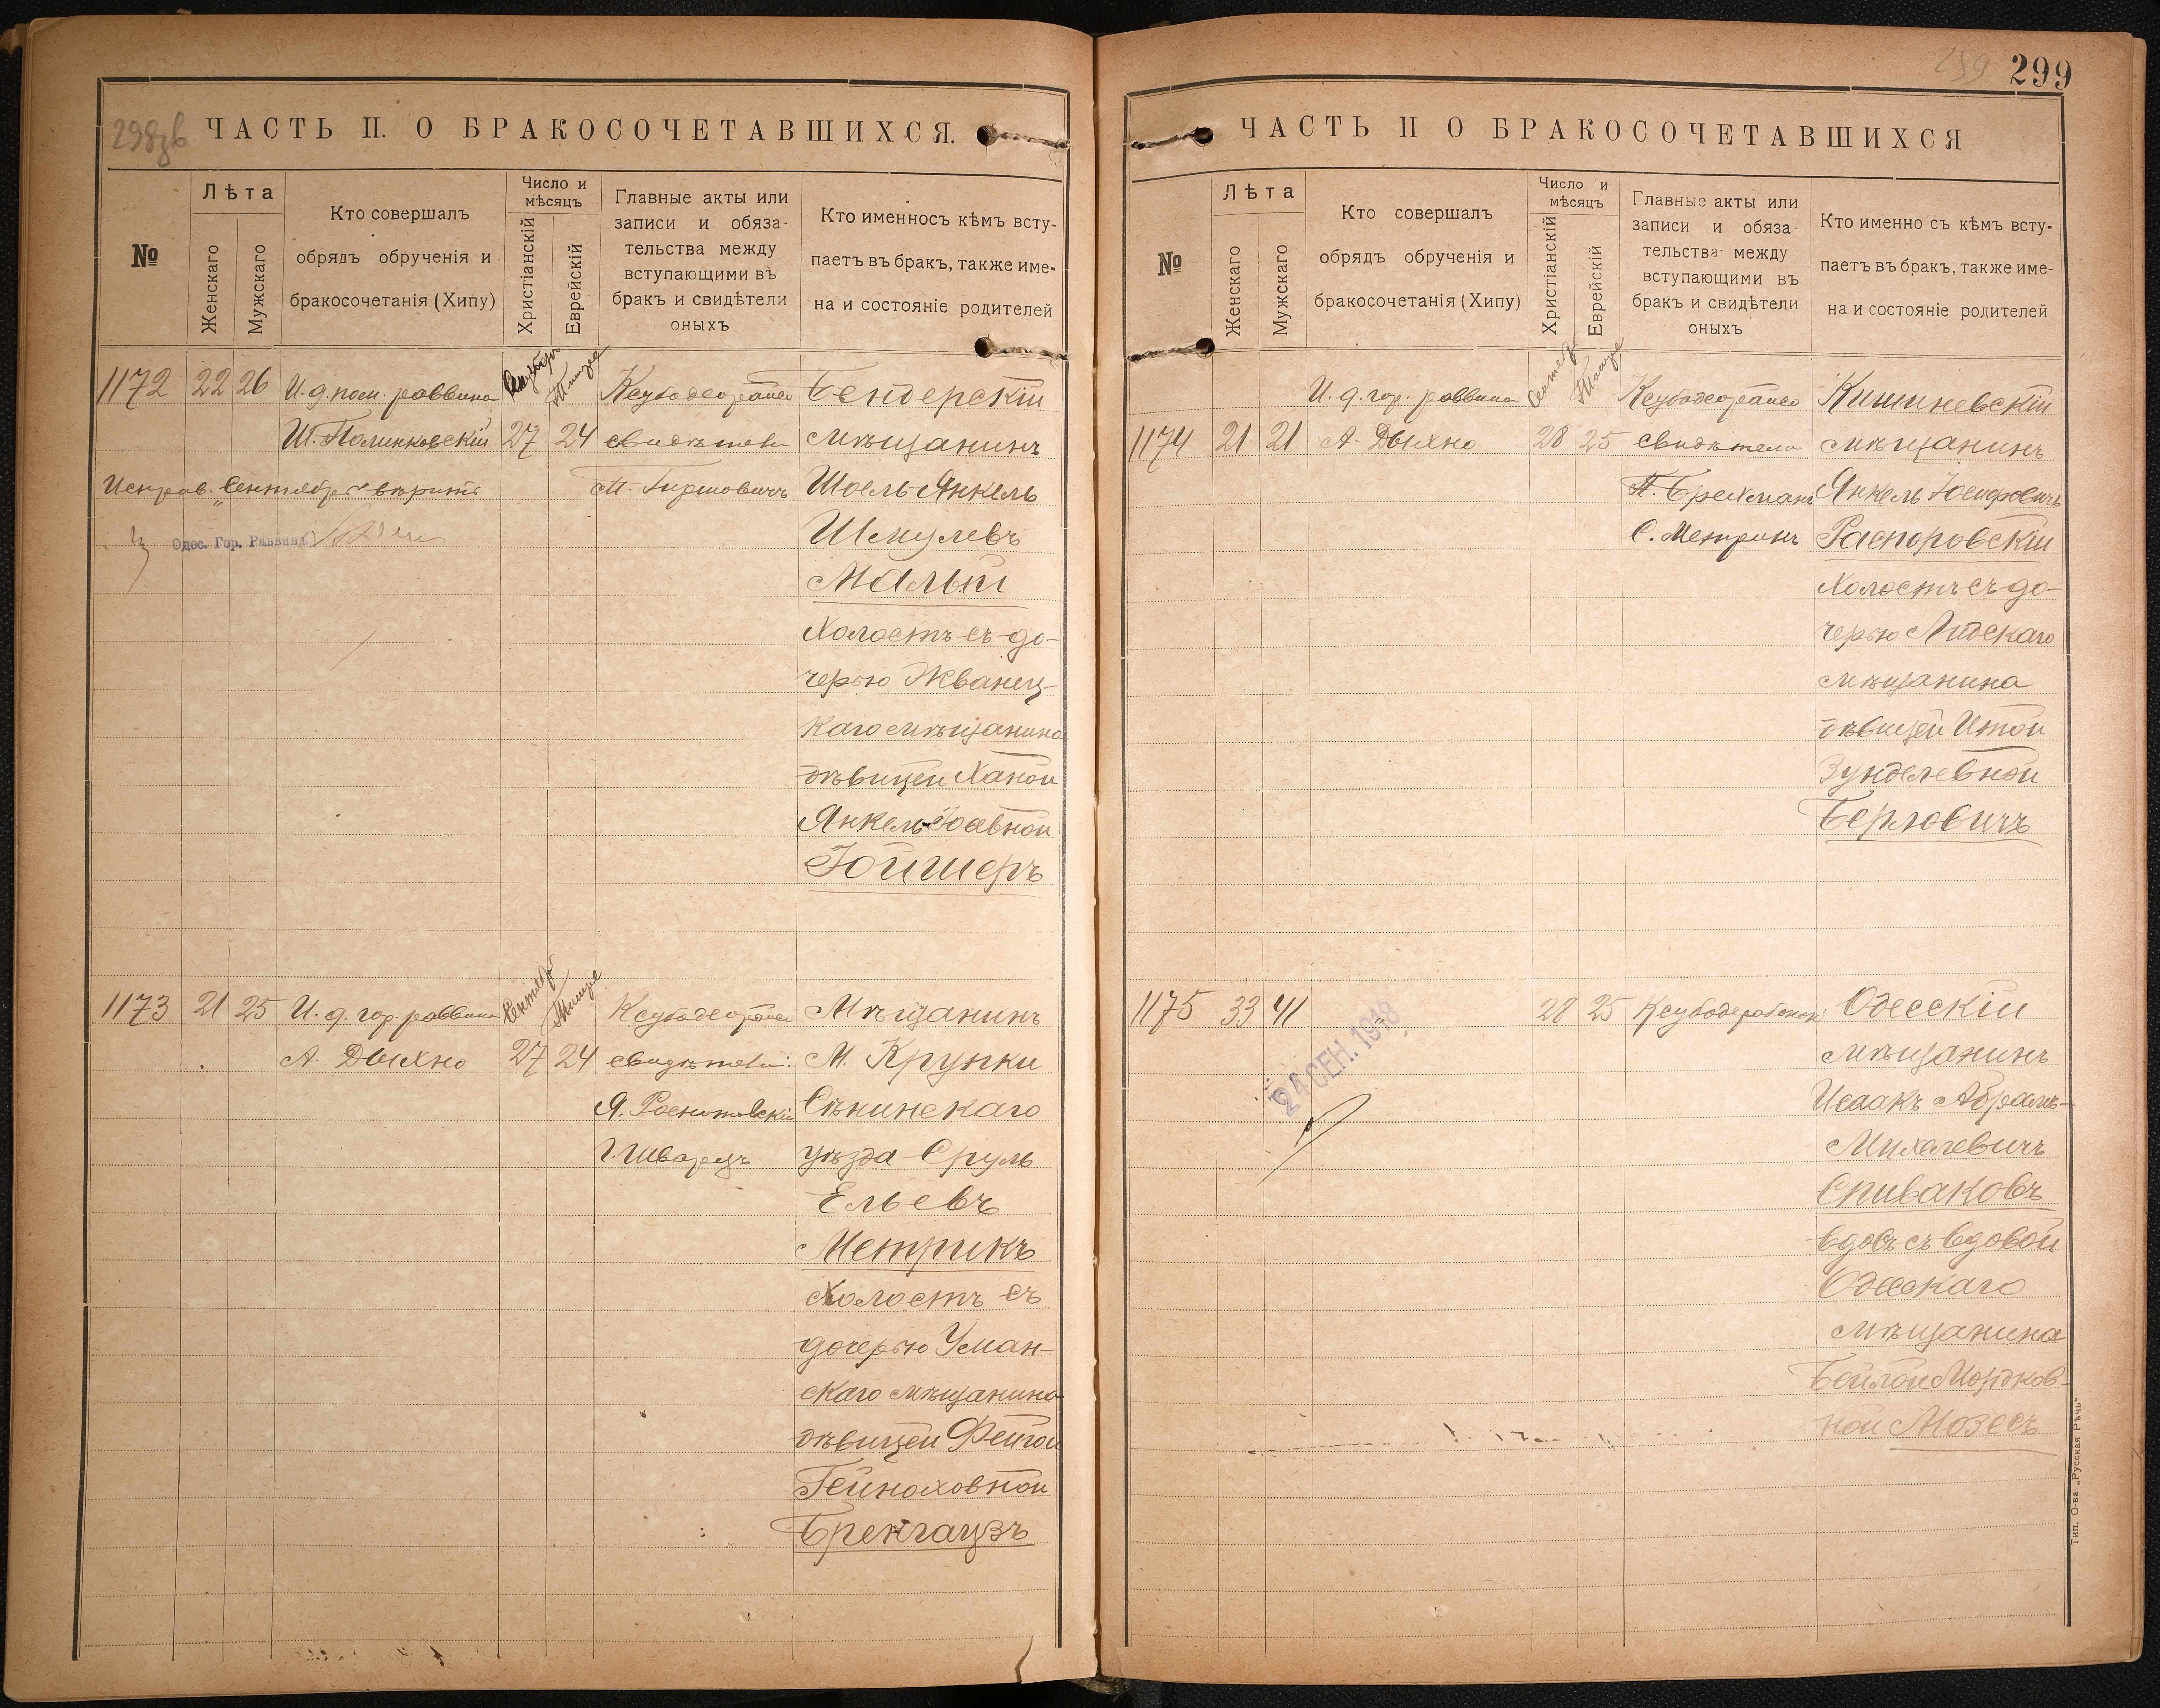 298зв
ЧАСТЬ II. О БРАКОСОЧЕТАВШИХСЯ.
№
Лѣта
Женскаго
Мужскаго
Кто совершалъ
обрядъ обрученія и
бракосочетанія (Хипу)
Число и
мѣсяцъ
Христіанскій
Еврейскій
Главные акты или
записи и обяза-
тельства между
вступающими въ
бракъ и свидѣтели
оныхъ
Кто именносъ кѣмъ всту-
паетъ въ бракъ, также име-
на и состояніе родителей
1172 22 26 И. д. пом. раввина
Ш. Полинковскій
Тишре
27 24
свидѣтели
М. Гиршовичъ
Бендерскій
мѣщанинъ
Шоель-Янкель
Шмулевъ
Малый
холостъ съ до-
черью Жванец-
каго мѣщанина
дѣвицей Ханой
Янкель-
Гойшеръ
Исправ. "Сентябрь" вѣрить
Одес. Гор. Раввинъ
1173 21 25 И. д. гор. раввина
А. Дыхно
Сентябр Тишре
27 24
свидѣтели:
Г. Шварцъ
Мѣщанинъ
М. Крупки
Сѣнинскаго
уѣзда Сруль
Ельевъ
Метрикъ
холостъ съ
дочерью Уман-
скаго мѣщанина
дѣвицей Фейгой
Гейноховной
Бренгаузъ
259
299
ЧАСТЬ II О БРАКОСОЧЕТАВШИХСЯ
№
Лѣта
Женскаго
Мужскаго
Кто совершалъ
обрядъ обрученія и
бракосочетанія (Хипу)
Число и
мѣсяцъ
Христіанскій
Еврейскій
Главные акты или
записи и обяза-
тельства между
вступающими въ
бракъ и свидѣтели
оныхъ
Кто именно съ кѣмъ всту-
паетъ въ бракъ, также име-
на и состояніе родителей
1174 21 21
И. д. гор. раввина
А. Дыхно
Сентябр Тишре
28 25
свидѣтели
П. Брейтманъ
С. Метрикъ
Кишиневскій
мѣщанинъ
Янкель Іосифовичъ
Распоровскій
холостъ съ до-
черью Лидскаго
мѣщанина
дѣвицей Итой
Зунделевной
Берловичъ
1175 33 41
28 25
24 СЕН. 1918
Одесскій
мѣщанинъ
Исаакъ Абрамъ-
Михелевичъ
Спиваковъ
вдовъ съ вдовой
Одесскаго
мѣщанина
Бейлой Мордков-
ной Мозесъ
Тип. О-ва „Русская Рѣчь"